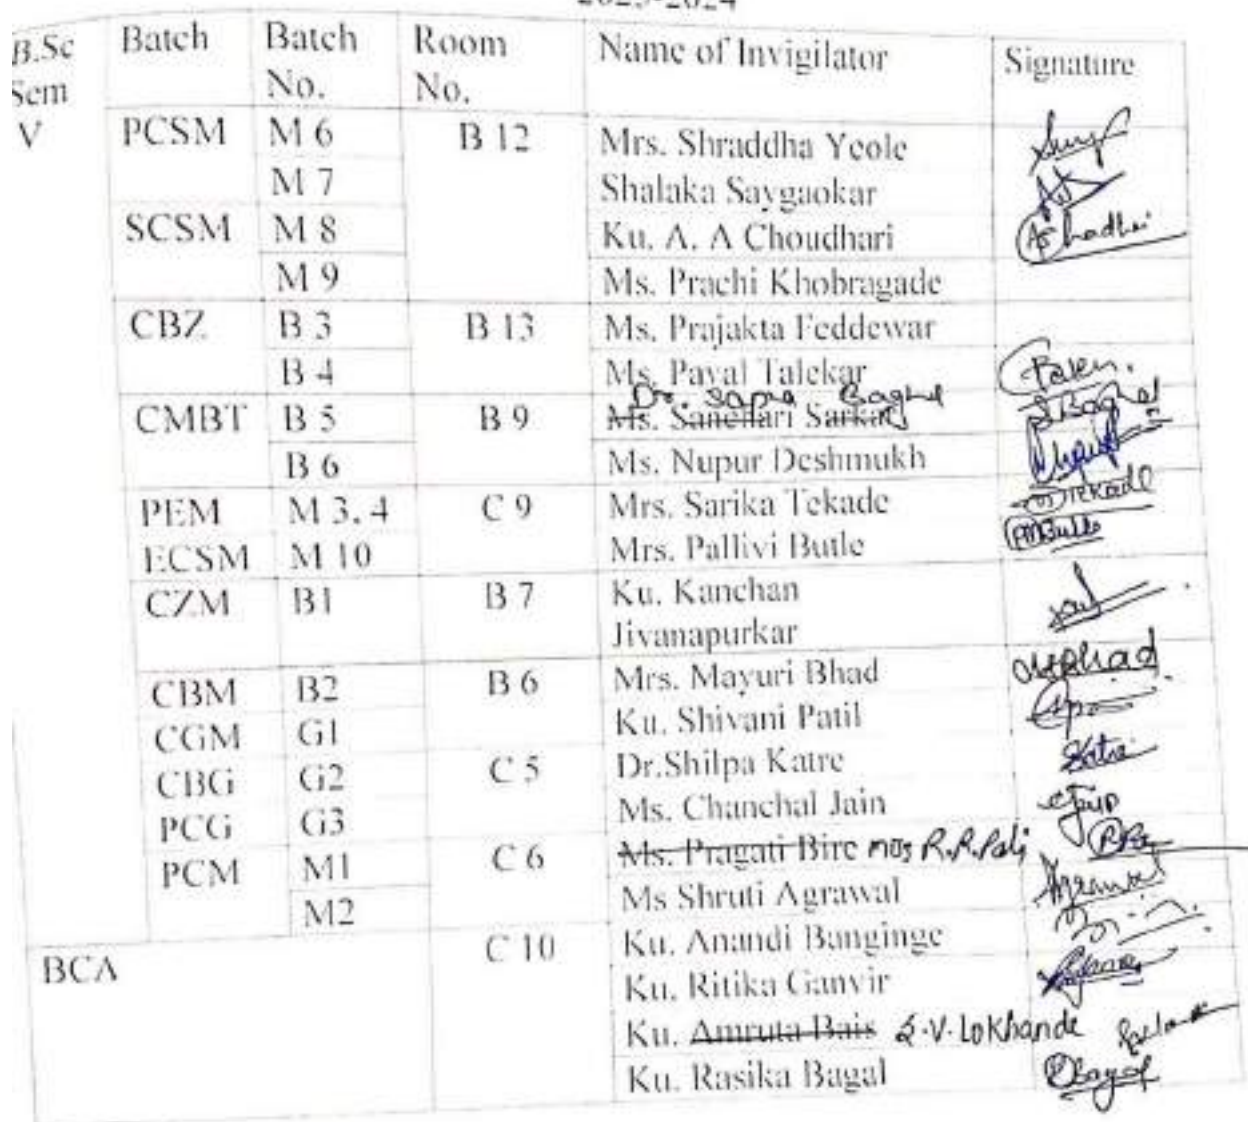 2023-2024
B.Sc Sem Batch Batch No. Room No. Name of Invigilator Signature
V PCSM M 6 B 12 Mrs. Shraddha Yeole
M 7 Shalaka Saygaokar
SCSM M 8 Ku. A. A Choudhari
M 9 Ms. Prachi Khobragade
CBZ B 3 B 13 Ms. Prajakta Feddewar
B 4 Ms. Payal Talekar
Dr. Sapna Baghel
CMBT B 5 B 9 Ms. Sanchari Sarkar
B 6 Ms. Nupur Deshmukh
PEM M 3, 4 C 9 Mrs. Sarika Tekade
ECSM M 10 Mrs. Pallivi Butle
CZM B1 B 7 Ku. Kanchan
Jivanapurkar
CBM B2 B 6 Mrs. Mayuri Bhad
CGM G1 Ku. Shivani Patil
CBG G2 C 5 Dr.Shilpa Katre
PCG G3 Ms. Chanchal Jain
PCM M1 C 6 Ms. Pragati Bire R.R.
M2 Ms Shruti Agrawal
BCA C 10 Ku. Anandi Banginge
Ku. Ritika Ganvir
Ku. Amruta Bais S.V. Lokhande
Ku. Rasika Bagal